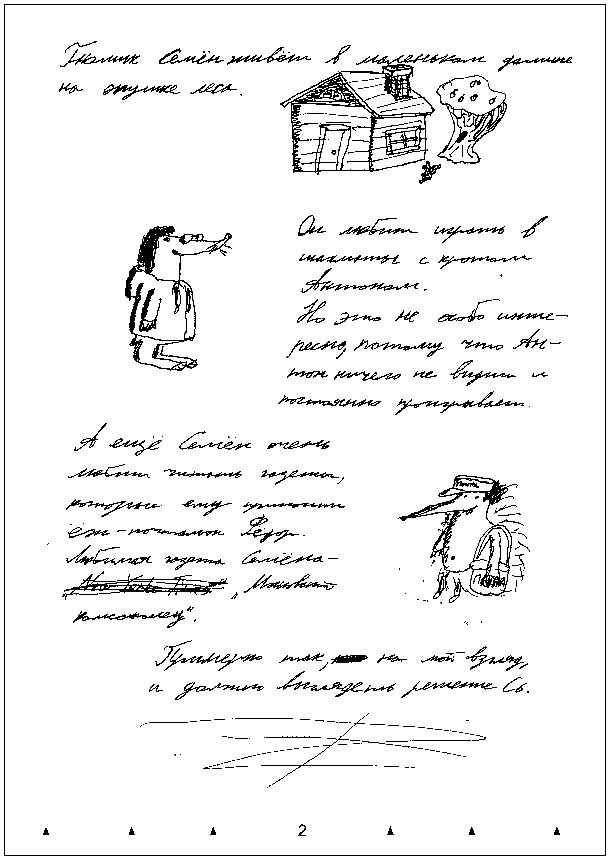 Гномик Семён живёт в маленьком домике
на опушке леса.
Он любит играть в
шахматы с кротом
Антоном.
Но это не особо инте-
ресно, потому что Ан-
тон ничего не видит и
постоянно проигрывает.
А ещё Семён очень
любит читать газеты,
которые ему приносит
ёж-почтальон Фёдор.
Любимая газета Семёна -
„New York Times" „Московский
комсомолец".
Примерно так, на мой взгляд,
и должно выглядеть решение С6.
2